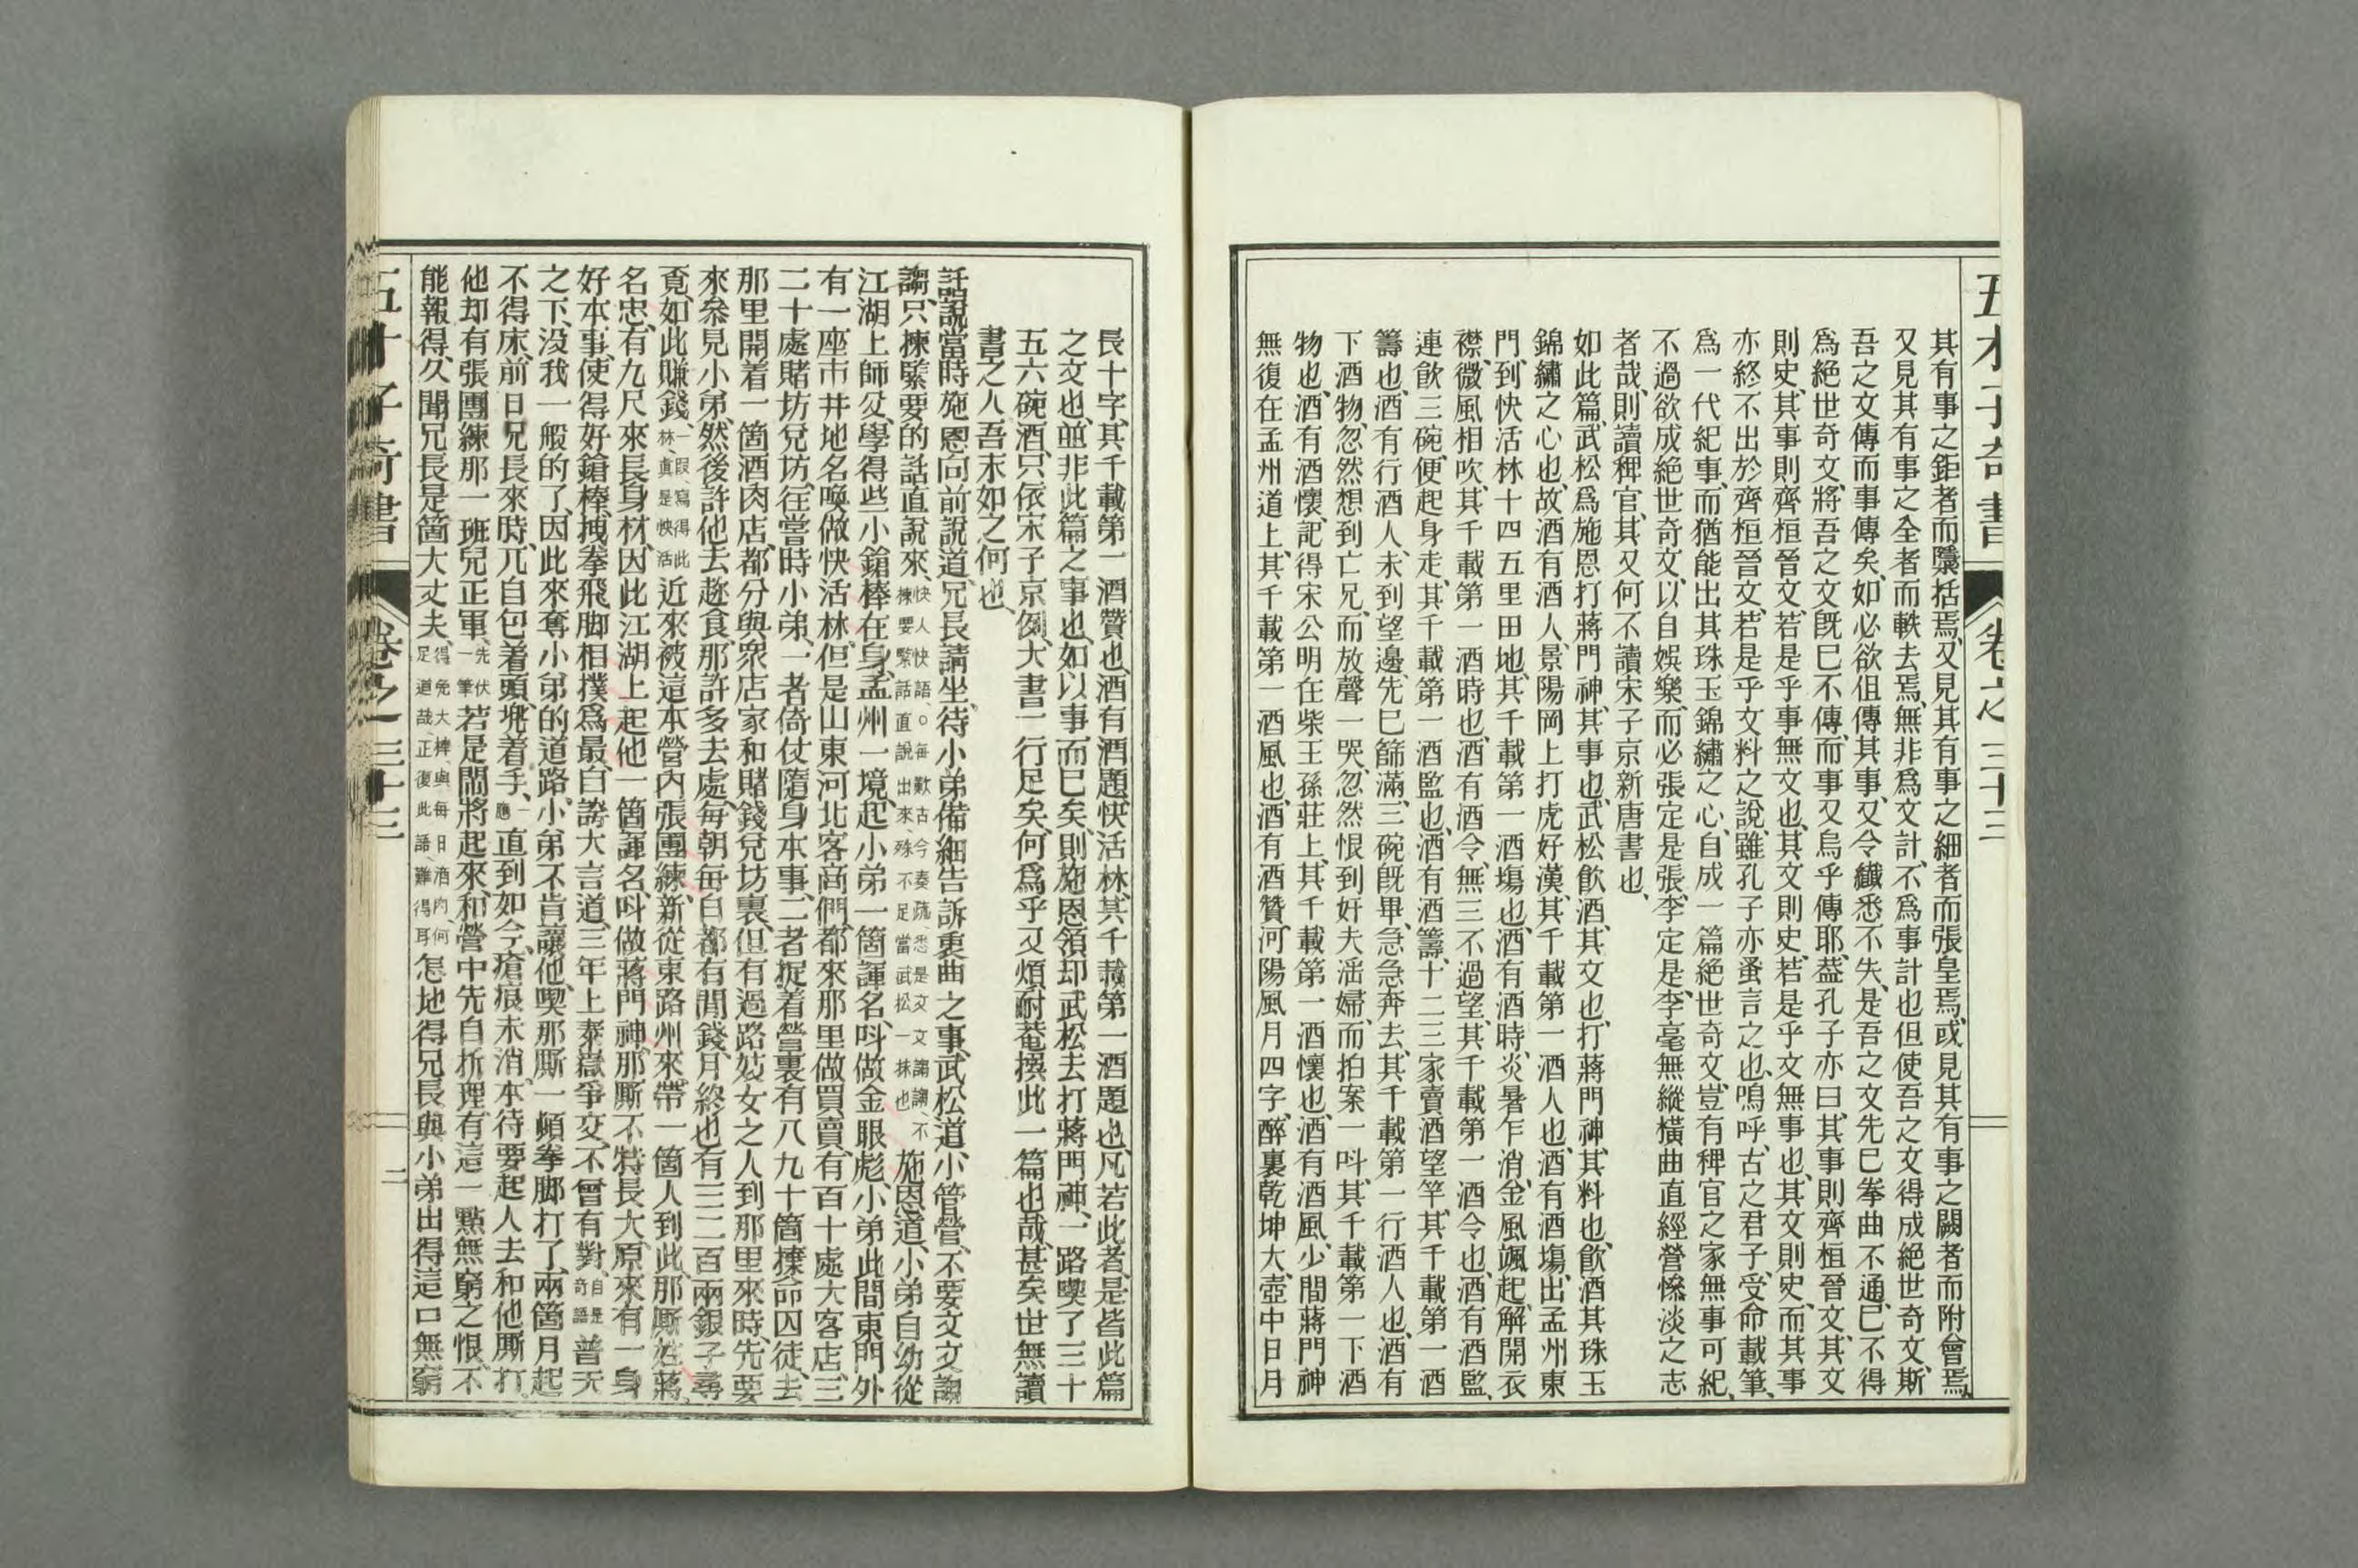 五才子奇書 卷之三十三
其有事之鉅者而隱括焉、又見其有事之細者而張皇焉、或見其有事之闕者而附會焉、
又見其有事之全者而軼去焉、無非爲文計、不爲事計也、但使吾之文得成絕世奇文、斯
吾之文傳而事傳矣、如必欲但傳其事、又令纖悉不失、是吾之文先已拳曲不通、已不得
爲絕世奇文、將吾之文旣已不傳、而事又烏乎傳耶、葢孔子亦曰、其事則齊桓晉文、其文
則史、其事則齊桓晉文、若是乎事無文也、其文則史、若是乎文無事也、其文則史、而其事
亦終不出於齊桓晉文、若是乎文料之說、雖孔子亦蚤言之也、嗚呼、古之君子、受命載筆、
爲一代紀事、而猶能出其珠玉錦繡之心、自成一篇絕世奇文、豈有稗官之家、無事可紀、
不過欲成絕世奇文、以自娛樂、而必張定是張、李定是李、毫無縱橫曲直經營慘淡之志
者哉、則讀稗官、其又何不讀宋子京新唐書也、
如此篇、武松爲施恩打蔣門神、其事也、武松飲酒、其文也、打蔣門神、其料也、飲酒其珠玉
錦繡之心也、故酒有酒人、景陽岡上打虎好漢、其千載第一酒人也、酒有酒塲、出孟州東
門、到快活林十四五里田地、其千載第一酒塲也、酒有酒時、炎暑乍消、金風颯起、解開衣
襟、微風相吹、其千載第一酒時也、酒有酒令、無三不過望、其千載第一酒令也、酒有酒監、
連飲三碗、便起身走、其千載第一酒監也、酒有酒籌、十二三家賣酒望竿、其千載第一酒
籌也、酒有行酒人、未到望邊、先已篩滿、三碗旣畢、急急奔去、其千載第一行酒人也、酒有
下酒物、忽然想到亡兄、而放聲一哭、忽然恨到奸夫淫婦、而拍案一呌、其千載第一下酒
物也、酒有酒懷、記得宋公明在柴王孫莊上、其千載第一酒懷也、酒有酒風、少間蔣門神
無復在孟州道上、其千載第一酒風也、酒有酒贊、河陽風月四字、醉裏乾坤大、壺中日月
長十字、其千載第一酒贊也、酒有酒題、快活林、其千載第一酒題也、凡若此者、是皆此篇
之文也、並非此篇之事也、如以事而已矣、則施恩領却武松去打蔣門神、一路喫了三十
五六碗酒、只依宋子京例、大書一行足矣、何爲乎又煩耐菴撰此一篇也哉、甚矣世無讀
書之人、吾末如之何也、
話說當時施恩向前說道、兄長請坐、待小弟備細告訴衷曲之事、武松道、小管營、不要文文謅
謅、只揀緊要的話直說來、快人快語、○每歎古今奏疏、悉是文文謅謅、不揀要緊話直說出來、殊不足當武松一抹也 施恩道、小弟自幼從
江湖上師父、學得些小鎗棒在身、孟州一境、起小弟一箇諢名、呌做金眼彪、小弟此間東門外
有一座市井、地名喚做快活林、但是山東河北客商們、都來那里做買賣、有百十處大客店、三
二十處賭坊兌坊、往嘗時小弟、一者倚仗隨身本事、二者捉着營裏有八九十箇𢬵命囚徒、去
那里開着一箇酒肉店、都分與衆店家和賭錢兌坊裏、但有過路妓女之人到那里來時、先要
來叅見小弟、然後許他去趂食、那許多去處、每朝每日都有閒錢、月終也有三二百兩銀子尋
覔、如此賺錢、一段、寫得此林、眞是快活 近來被這本營內張團練、新從東路州來、帶一箇人到此、那厮姓蔣、
名忠、有九尺來長身材、因此江湖上起他一箇諢名、呌做蔣門神、那厮不特長大、原來有一身
好本事、使得好鎗棒、拽拳飛脚、相撲爲最、自誇大言道、三年上泰嶽爭交、不曾有對、自是奇語 普天
之下、没我一般的了、因此來奪小弟的道路、小弟不肯讓他、喫那厮一頓拳脚打了、兩箇月起
不得床、前日兄長來時、兀自包着頭、兠着手、一應 直到如今、瘡痕未消、本待要起人去和他厮打、
他却有張團練那一班兒正軍、先伏一筆 若是閙將起來、和營中先自折理、有這一點無窮之恨、不
能報得、久聞兄長是箇大丈夫、得免大棒、與每日酒肉、何足道哉、正復此語、難得耳 怎地得兄長與小弟出得這口無窮
五才子奇書 卷之三十三 二